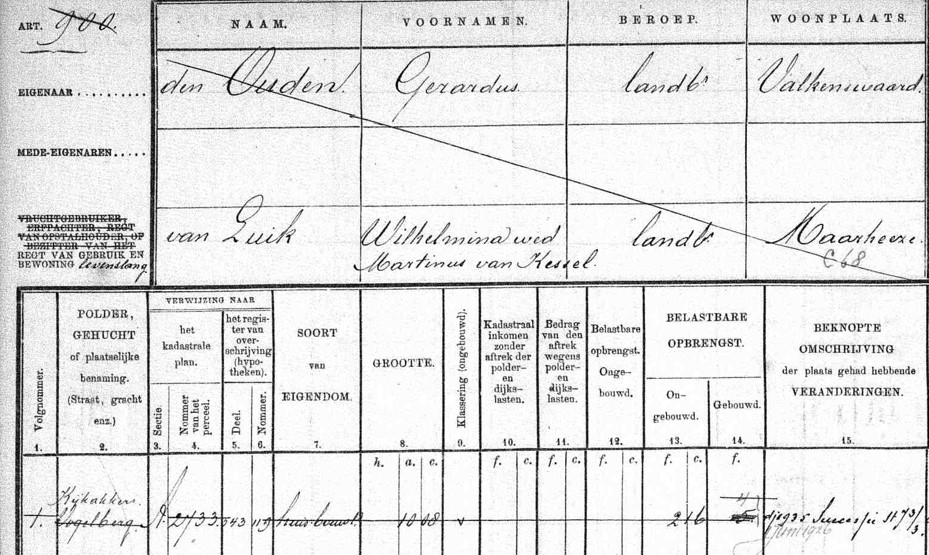 ART. 900.
NAAM. VOORNAMEN. BEROEP. WOONPLAATS.
EIGENAAR .......... den Ouden. Gerardus. landbr Valkenswaard.
MEDE-EIGENAREN.....
VRUCHTGEBRUIKER,
ERFPACHTER, REGT
VAN OPSTALHOUDER, OF
BEZITTER VAN HET
REGT VAN GEBRUIK EN
BEWONING levenslang
van Luik Wilhelmina wed landbr Maarheeze.
Martinus van Kessel. C 68
Volgnommer.
1.
POLDER,
GEHUCHT
of plaatselijke
benaming.
(Straat, gracht
enz.)
2.
VERWIJZING NAAR
het
kadastrale
plan.
Sectie.
3.
Nommer
van het
perceel.
4.
het regis-
ter van
over-
schrijving
(hypo-
theken).
Deel.
5.
Nommer.
6.
SOORT
van
EIGENDOM.
7.
GROOTTE.
8.
Klassering (ongebouwd).
9.
Kadastraal
inkomen
zonder
aftrek der
polder-
en
dijks-
lasten.
10.
Bedrag
van den
aftrek
wegens
polder-
en
dijks-
lasten.
11.
Belastbare
opbrengst.
Onge-
bouwd.
12.
BELASTBARE
OPBRENGST.
On-
gebouwd.
13.
Gebouwd.
14.
BEKNOPTE
OMSCHRIJVING
der plaats gehad hebbende
VERANDERINGEN.
15.
h. a. c. f. c. f. c. f. c. f. c. f.
Kijkakkers.
1. Vogelberg. A. 2733 543 119 10 08 v 2 16 dj 1935 Successie